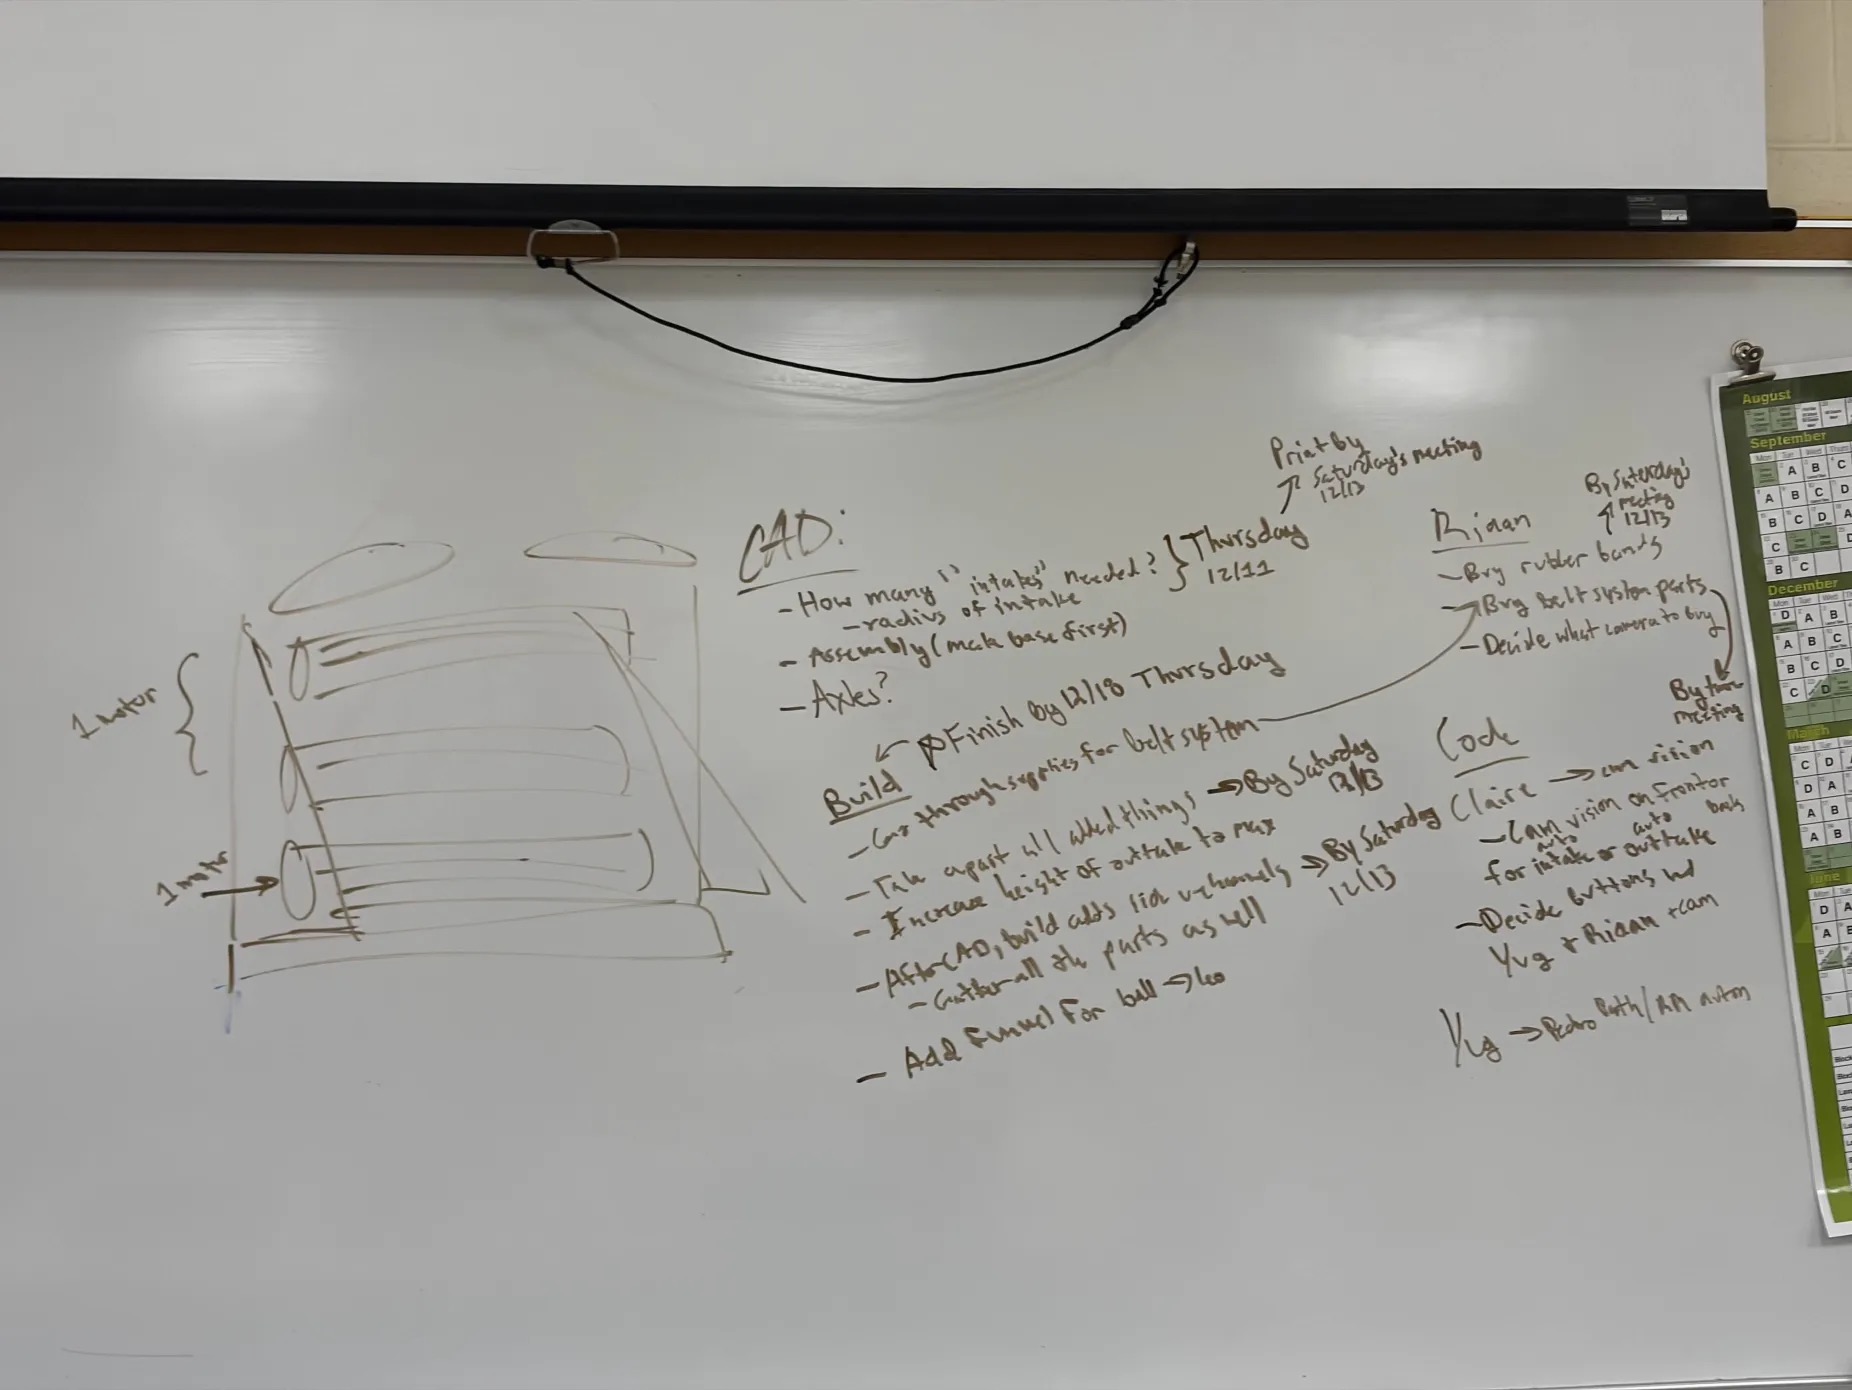 1 motor
1 motor
CAD:
- How many "intakes" needed? } Thursday
12/11
Print by
Saturday's meeting
12/13
- radius of intake
- Assembly (make base first)
- Axles?
Finish by 12/18 Thursday
Build
- through supplies for belt system
- Take apart all added things → By Saturday
12/13
- Increase height of outtake to max
- After CAD, build adds side u-channels → By Saturday
12/13
- Gather all the parts as well
- Add funnel for ball → Leo
Riaan
- Buy rubber bands
By Saturday's
meeting
12/13
- Buy belt system parts
- Decide what camera to buy
By
meeting
Code
Claire → cam vision
- Cam vision on front or
back
auto auto
for intake or outtake
- Decide buttons
Yug + Riaan + cam
Yug → Pedro Path / auton
August
September
Mon Tue Wed Thurs
A B C
A B C D
B C D A
C D
B C
December
Mon Tue Wed
D A B
A B C
B C D
C D
March
Mon Tue Wed
C D A
D A B
A B
A B
June
Mon Tue
D A
A B